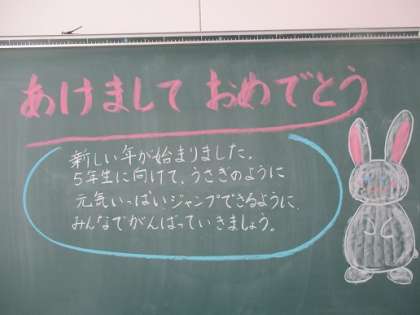 あけまして おめでとう
新しい年が始まりました。
5年生に向けて、うさぎのように
元気いっぱいジャンプできるように、
みんなでがんばっていきましょう。